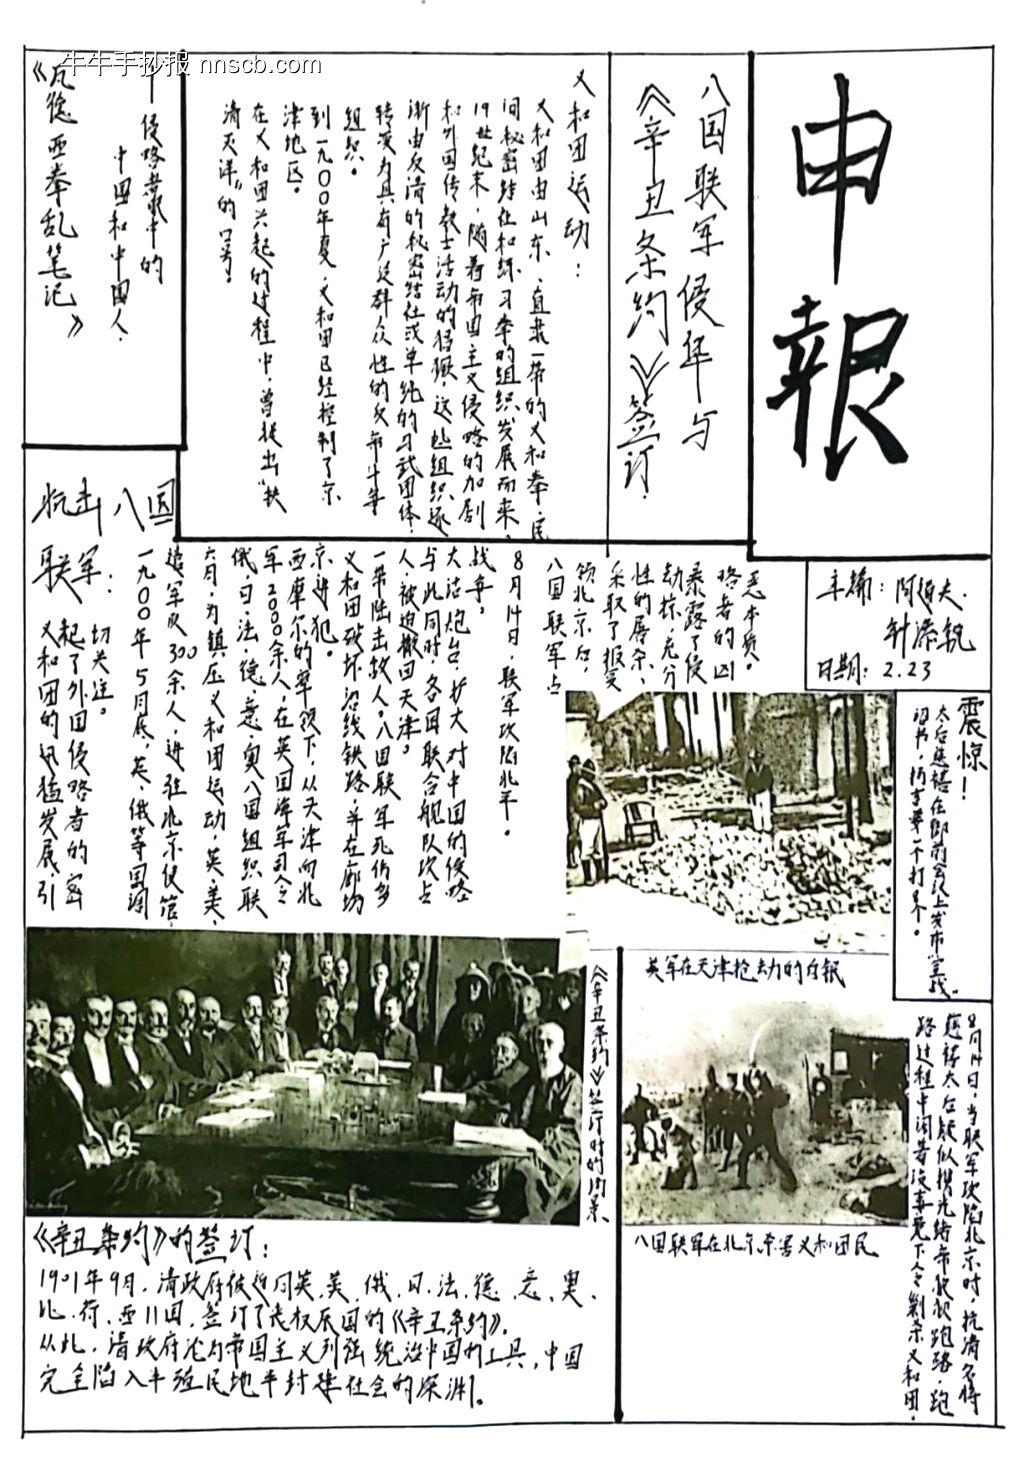 牛牛手抄报 nnscb.com
申
報
八国联军侵华与
《辛丑条约》签订.
义和团运动：
义和团由山东、直隶一带的义和拳、民
间秘密结社和练习拳的组织发展而来。
19世纪末，随着帝国主义侵略的加剧
和外国传教士活动的猖獗，这些组织逐
渐由反清的秘密结社或单纯的习武团体，
转变为具有广泛群众性的反帝斗争
组织。
到一九00年夏，义和团已经控制了京
津地区。
在义和团兴起的过程中，曾提出“扶
清灭洋”的口号。
侵略者眼中的
中国和中国人.
《瓦德西拳乱笔记》
主编：阿道夫.
日期：2.23
抗击八国
联军：
义和团的迅猛发展，引
起了外国侵略者的密
切关注。
一九00年5月底，英、俄等国调
遣军队300余人，进驻北京使馆.
六月，为镇压义和团运动，英、美、
俄、日、法、德、意、奥八国组织联
军2000余人，在英国海军司令
西摩尔的率领下，从天津向北
京进犯。
义和团破坏沿线铁路，并在廊坊
一带陆击敌人。八国联军死伤多
人，被迫撤回天津。
与此同时，各国联合舰队攻占
大沽炮台，扩大对中国的侵略
战争。
8月14日，联军攻陷北平。
八国联军占
领北京后，
采取了报复
性的屠杀、
劫掠，充分
暴露了侵
略者的凶
恶本质。
震惊！
太后慈禧在御前会议上发布“宣战”
诏书，扬言要一个打8个。
英军在天津抢劫的白银
《辛丑条约》签订时的场景
八国联军在北京杀害义和团民
8月14日，当联军攻陷北京时，抗清名将
慈禧太后疑似携光绪帝狼狈跑路，跑
路过程中闲着没事竟下令剿杀义和团.
《辛丑条约》的签订：
1901年9月，清政府被迫同英、美、俄、日、法、德、意、奥、
比、荷、西11国，签订了丧权辱国的《辛丑条约》，
从此，清政府沦为帝国主义列强统治中国的工具，中国
完全陷入半殖民地半封建社会的深渊。